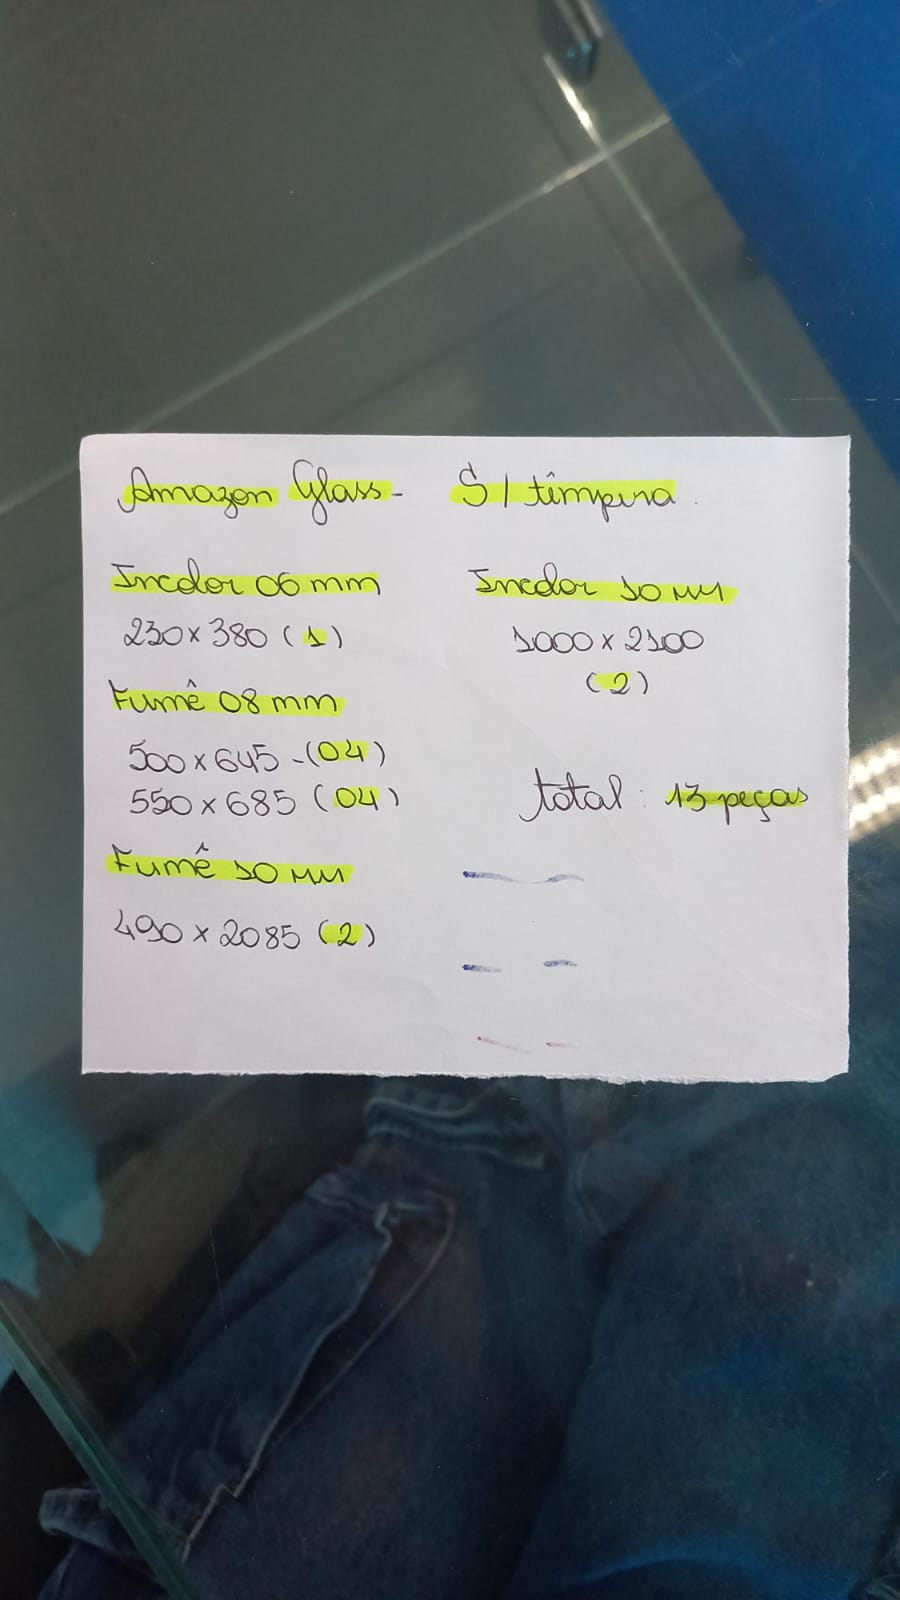 Amazon Glass - S/ têmpera
Incolor 06 mm
230 x 380 (1)
Fumê 08 mm
500 x 645 - (04)
550 x 685 (04)
Fumê 10 MM
490 x 2085 (2)
Incolor 10 MM
1000 x 2100
(2)
total : 13 peças